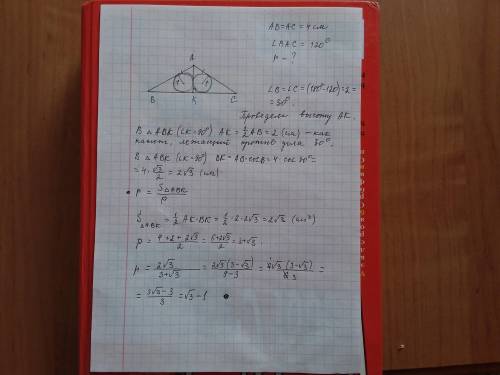 AB=AC=4 см
∠BAC = 120°
r - ?
A
r
r
B
K
C
∠B=∠C=(180°-120°):2=
=30°.
Проведем высоту AK.
В △ ABK (∠K=90°) AK = 1/2 AB = 2 (см) - как
катет, лежащий против угла 30°.
В △ ABK (∠K=90°) BK = AB·cosB = 4·cos 30°=
= 4·√3/2 = 2√3 (см)
r = S△ABK/p
S△ABK = 1/2 AK·BK = 1/2·2·2√3 = 2√3 (см²)
p = (4+2+2√3)/2 = (6+2√3)/2 = 3+√3
r = 2√3/(3+√3) = 2√3(3-√3)/(9-3) = 2√3(3-√3)/6 3 =
= (3√3-3)/3 = √3-1